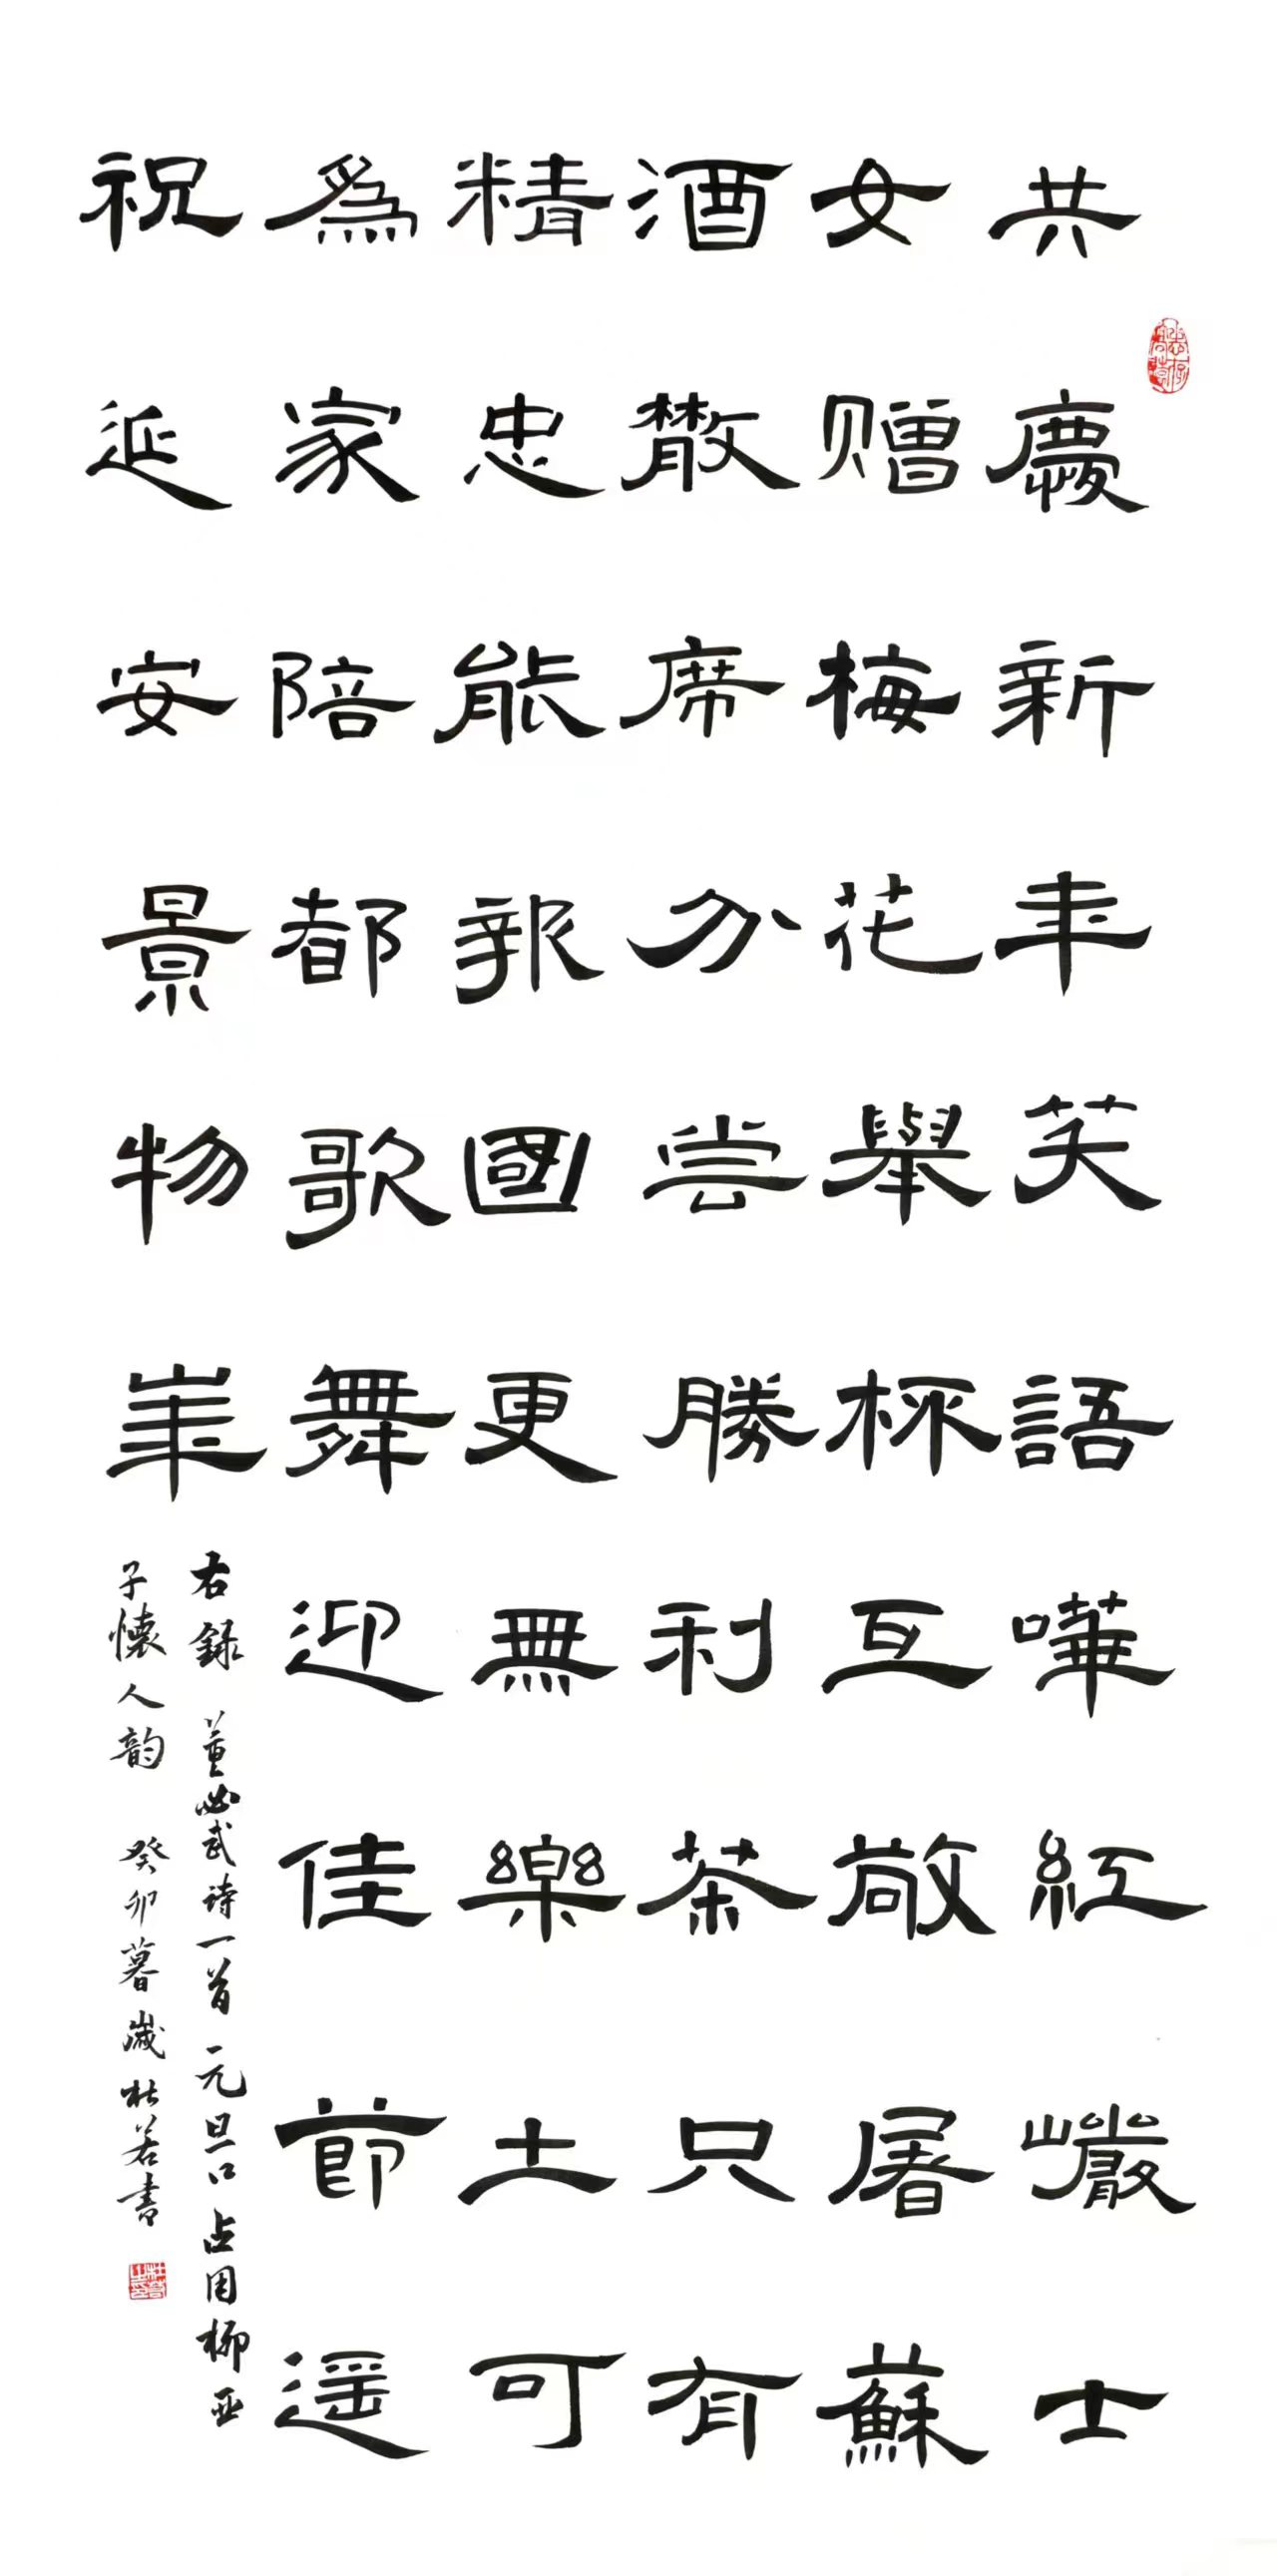 共慶新年笑語嘩紅巖士
女赠梅花舉杯互敬屠蘇
酒散席分尝勝利茶只有
精忠能報國更無樂土可
為家陪都歌舞迎佳節遥
祝延安景物華
右録 董必武詩一首 元旦口占用柳亚
子懷人韵 癸卯暮歲杜若書